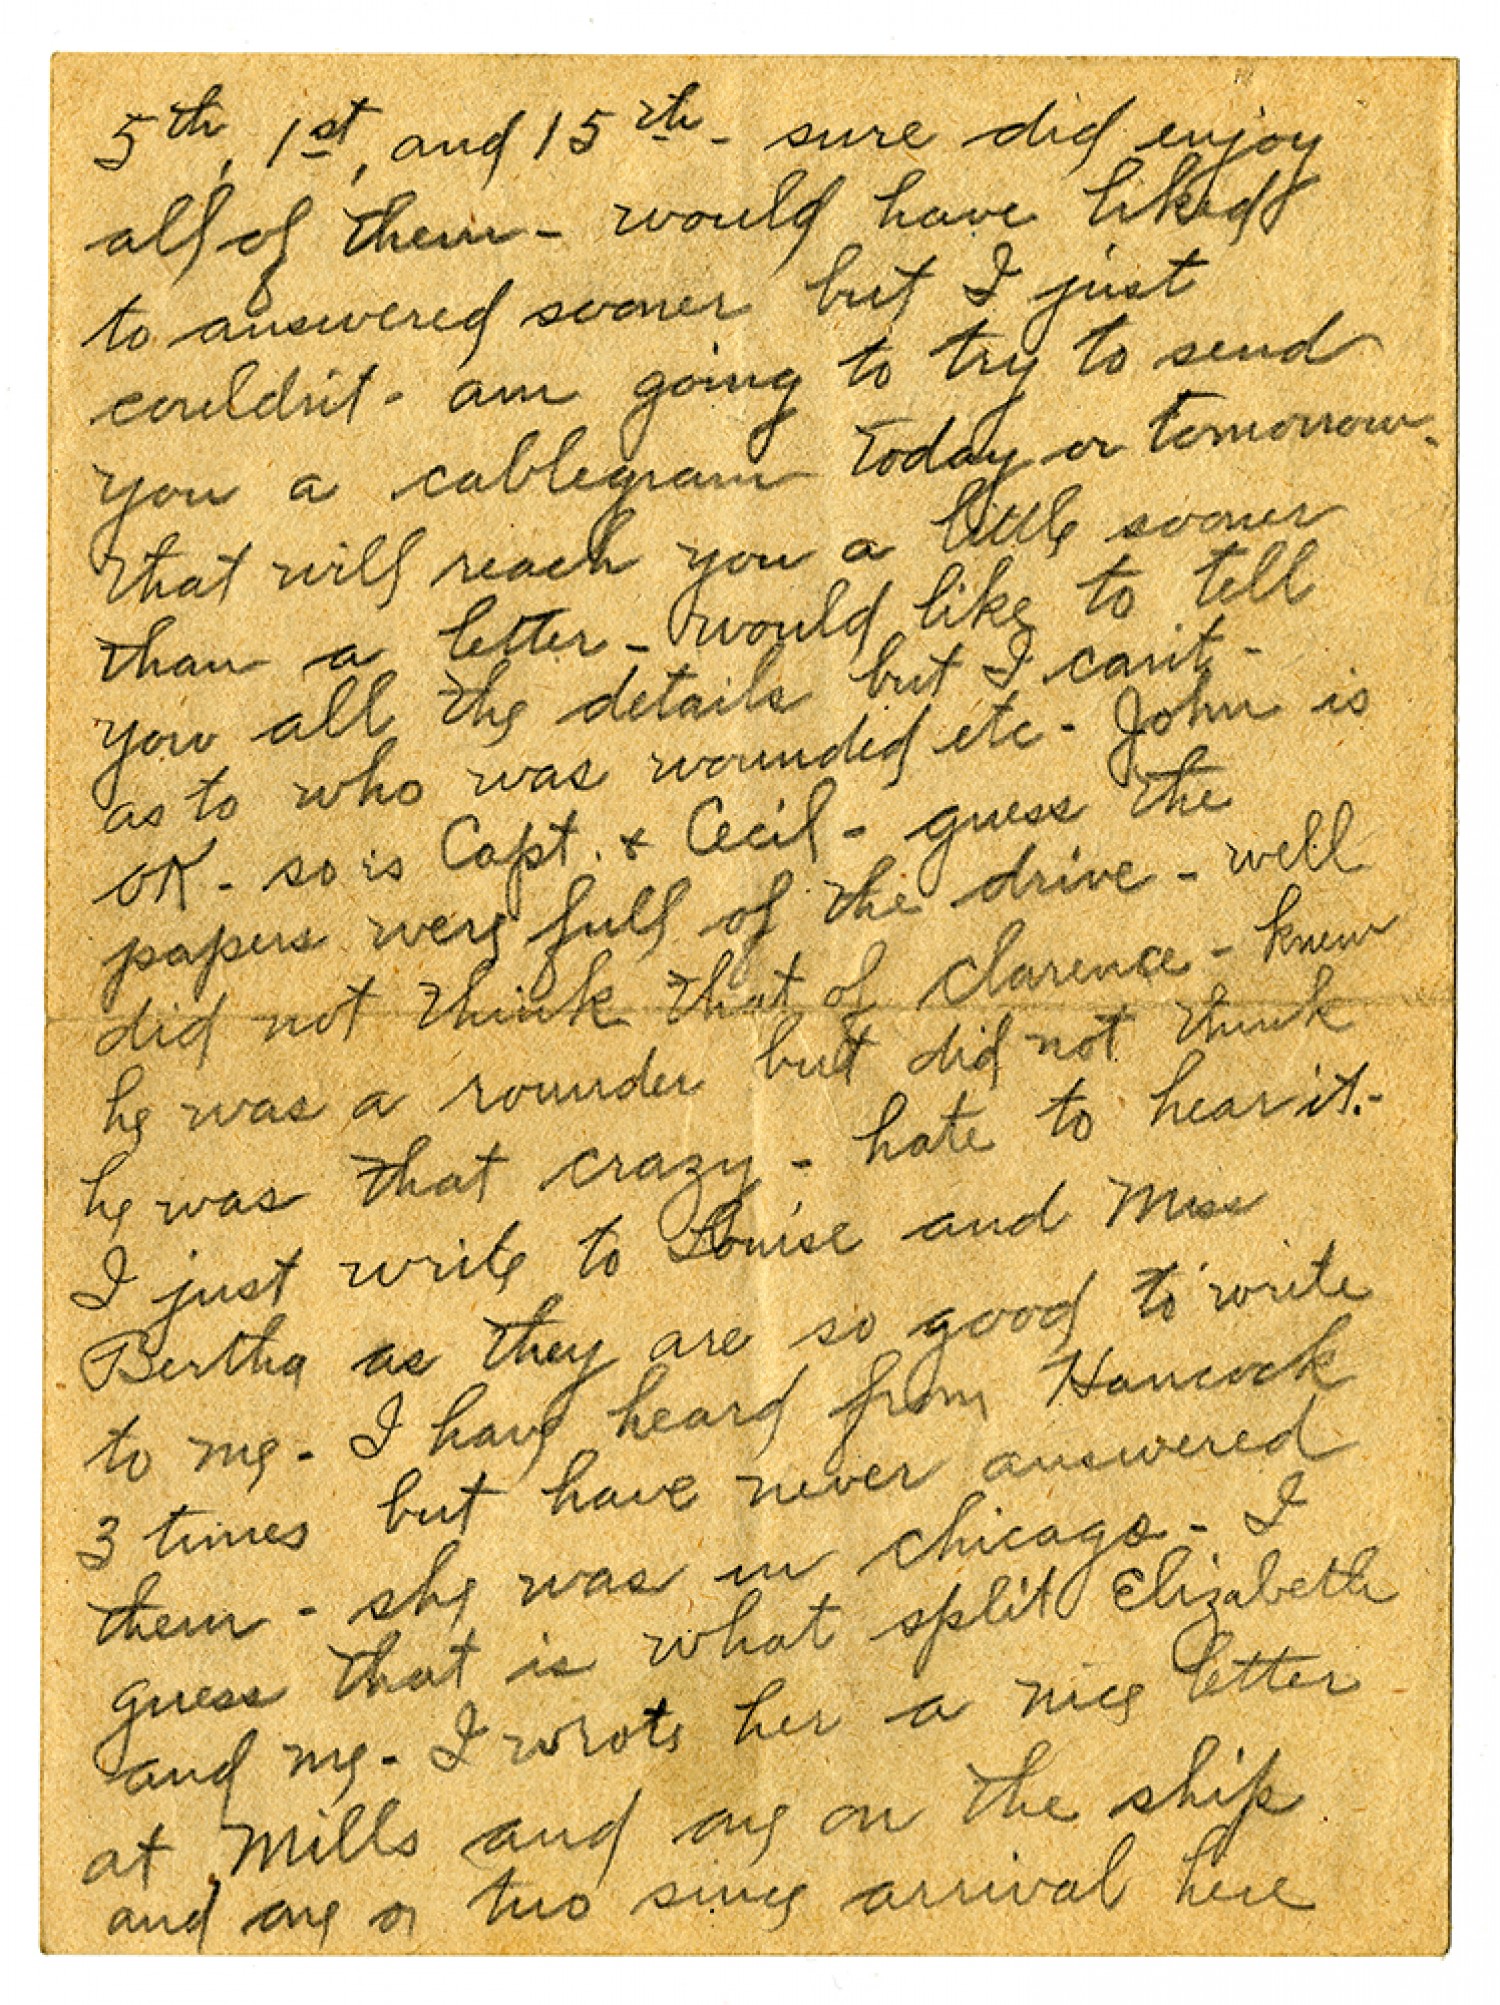 5th, 1st, and 15th - sure did enjoy
all of them - would have liked
to answered sooner but I just
couldn't - am going to try to send
you a cablegram today or tomorrow -
that will reach you a little sooner
than a letter - would like to tell
you all the details but I can't -
as to who was wounded etc - John is
OK - so is Capt. & Cecil - guess the
papers were full of the drive - well
did not think that of Clarence - knew
he was a rounder but did not think
he was that crazy - hate to hear it. -
I just write to Louise and Miss
Bertha as they are so good to write
to me - I have heard from Hancock
3 times but have never answered
them - she was in Chicago - I
guess that is what split Elizabeth
and me - I wrote her a nice letter
at Mills and one on the ship
and one or two since arrival here